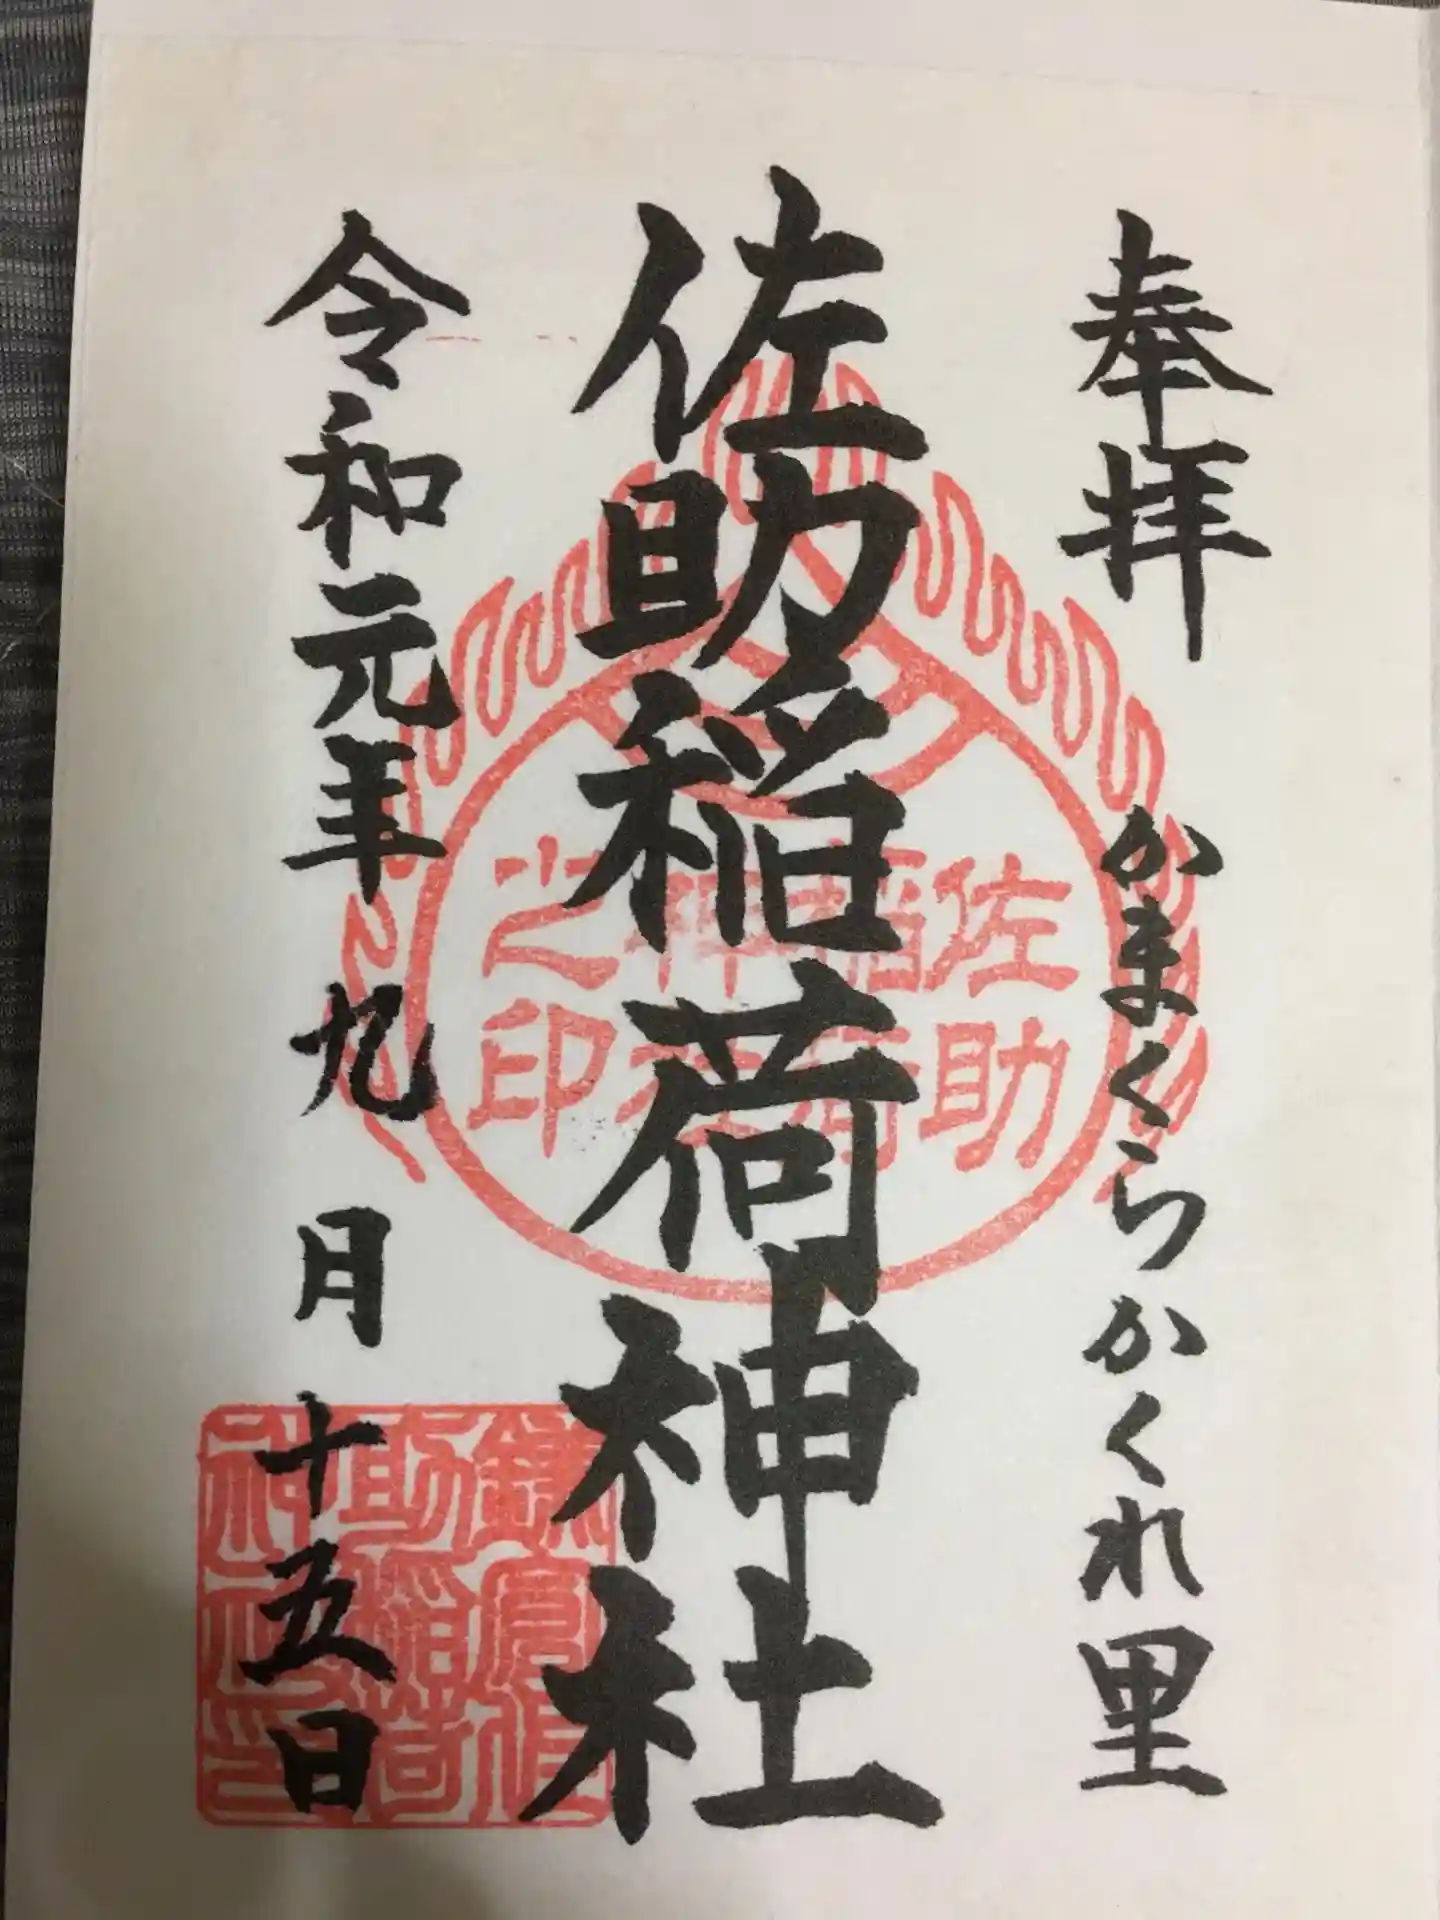 奉拝
かまくらかくれ里
佐助稲荷神社
令和元年九月十五日
佐助
稲荷
神社
之印
鎌倉佐
助稲荷
神社印